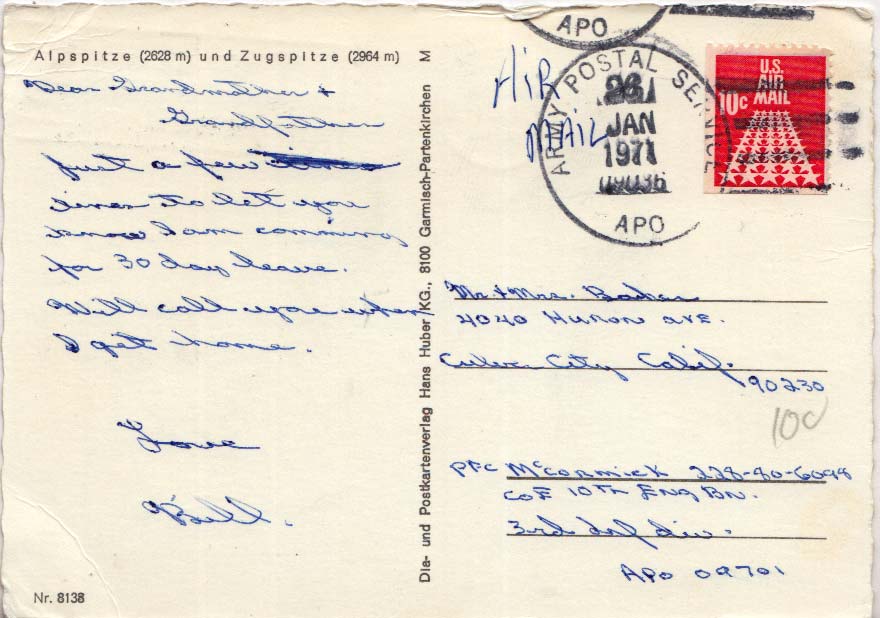 Alpspitze (2628 m) und Zugspitze (2964 m) M
Dear Grandmother +
Grandfather
just a few
lines to let you
know I am comming
for 30 day leave.
Will call you when
I get home.
Love
Bill.
Nr. 8138
Dia- und Postkartenverlag Hans Huber KG., 8100 Garmisch-Partenkirchen
AIR
MAIL
APO
ARMY POSTAL SERVICE
26
JAN
1971
APO
U.S.
AIR
MAIL
10c
Mr + Mrs.
4040 Huron ave.
Culver City Calif.
90230
10c
Pfc McCormick 228-80-6098
Co E 10th Eng Bn.
3rd Inf div.
APO 09701